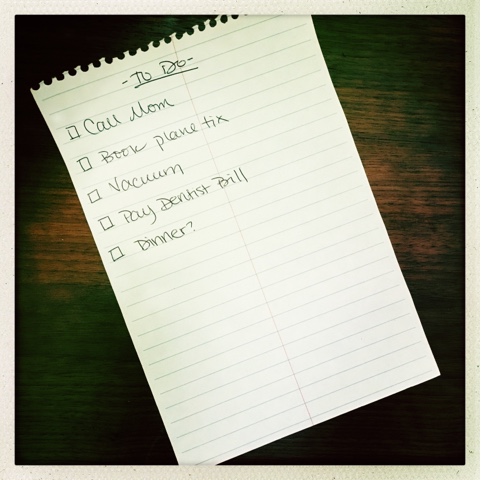 -To Do-
Call Mom
Book plane tix
Vacuum
Pay Dentist Bill
Dinner?